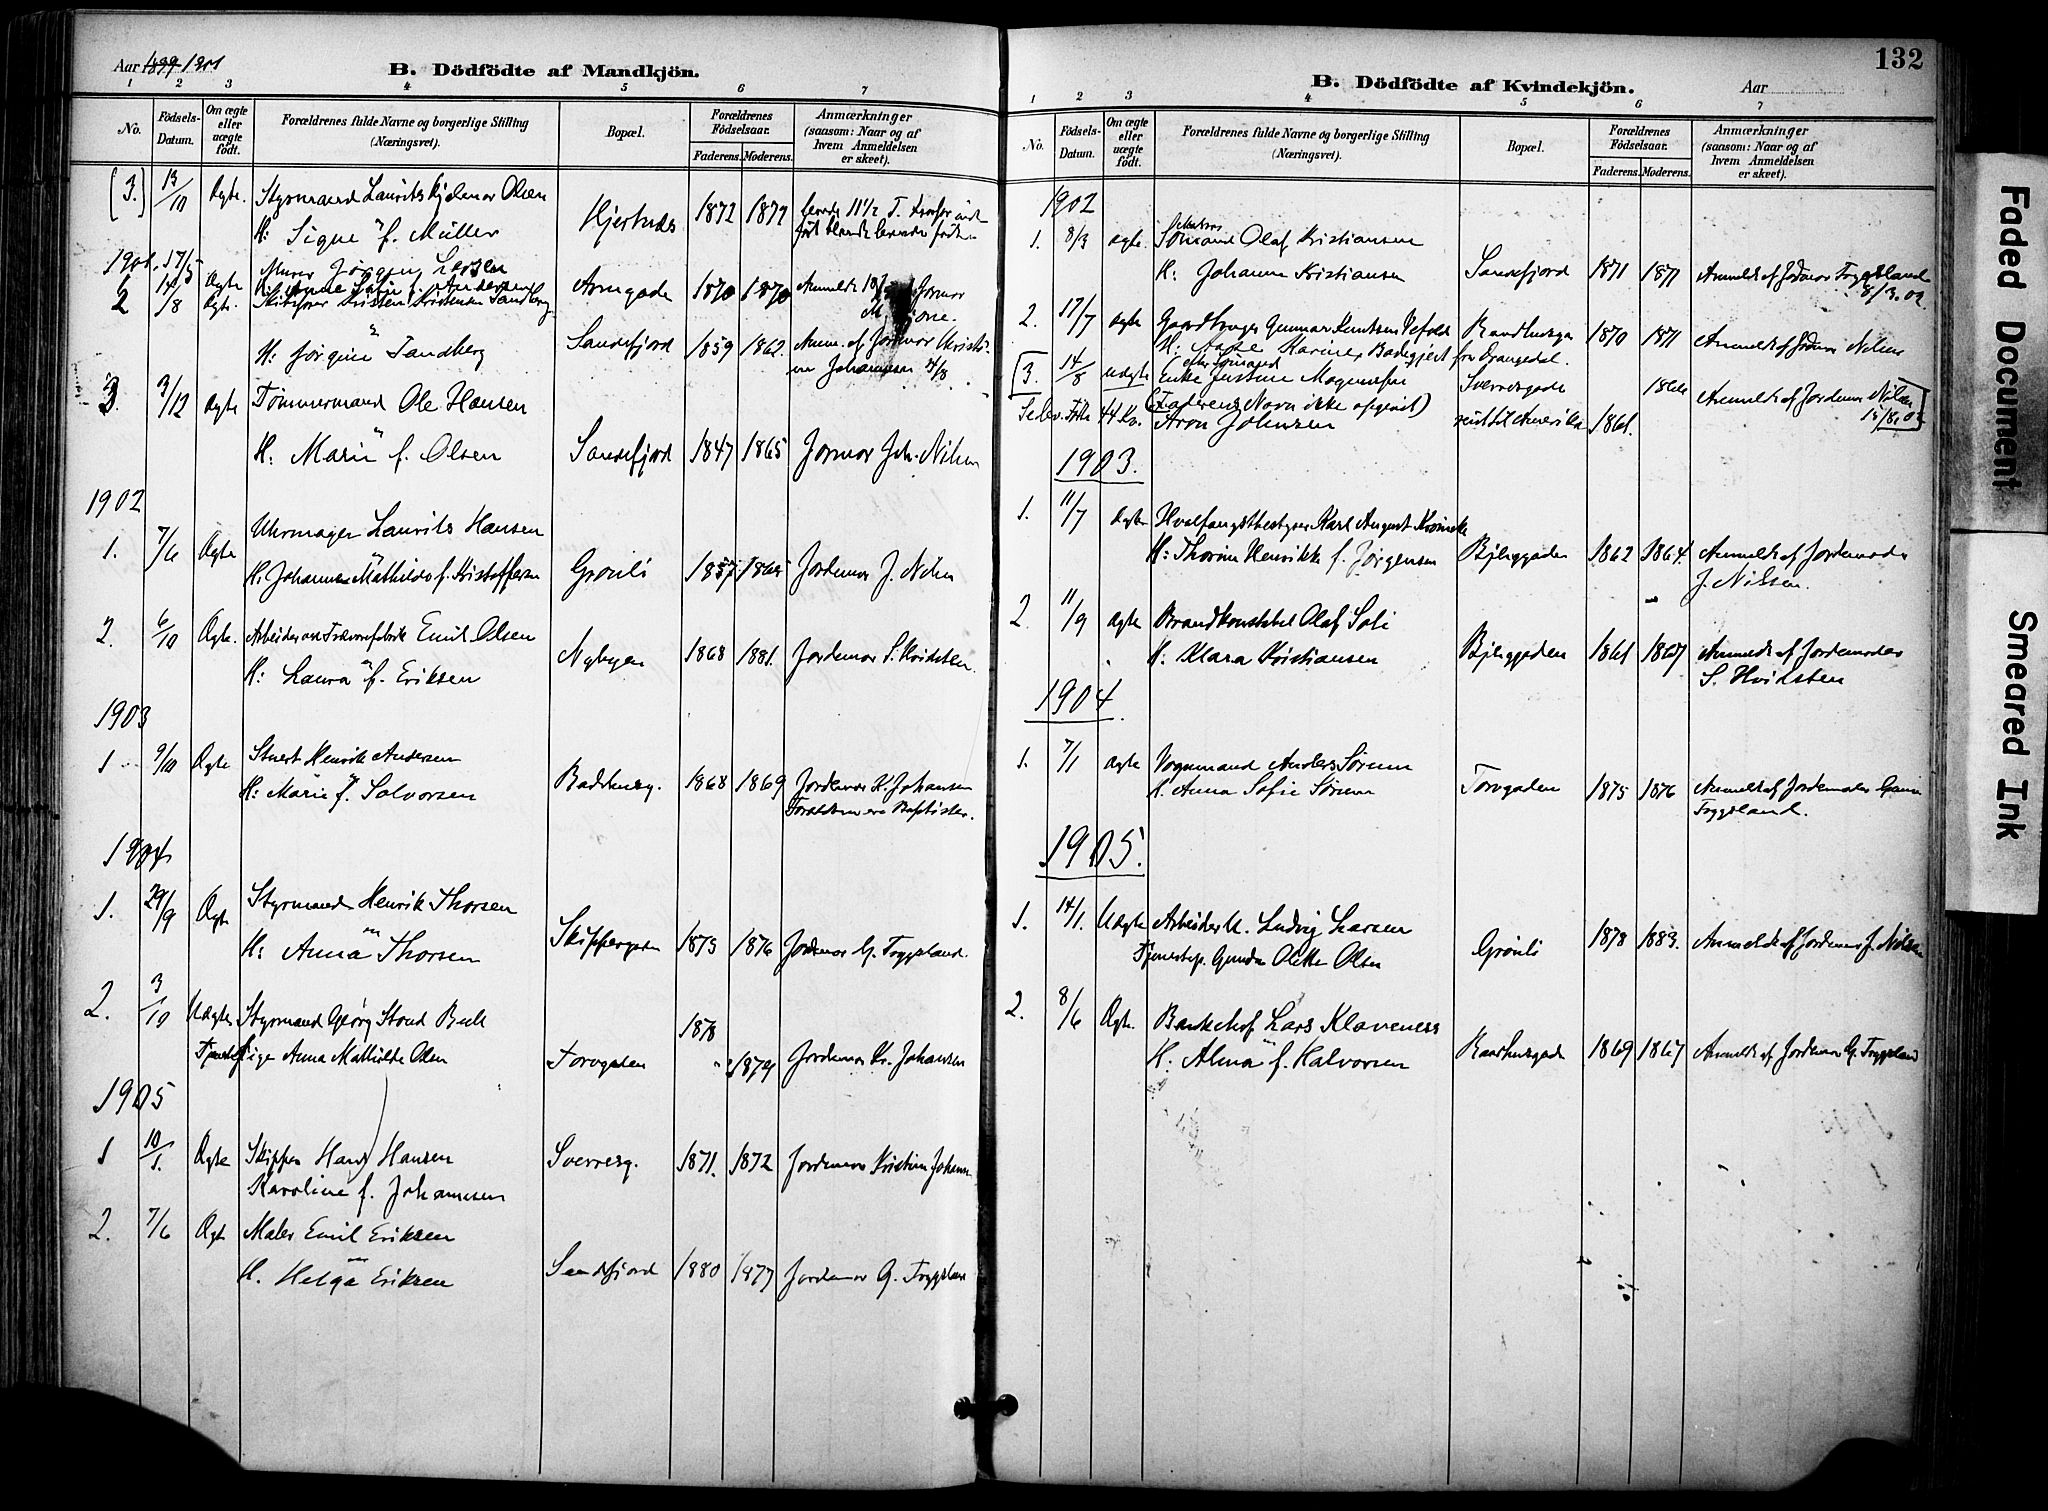 Aar 1899-1901
B. Dödfödte af Mandkjön.
1 2 3 4 5 6 7
No.
Födsels-Datum.
Om ægte eller uægte födt.
Forældrenes fulde Navne og borgerlige Stilling (Næringsvei).
Bopæl.
Forældrenes Födselsaar.
Faderens. Moderens.
Anmærkninger (saasom: Naar og af hvem Anmeldelsen er skeet).
[3.] 13/10 Ægte. Styrmand Laurits Hjelmar Olsen
H: Signe f. Müller Hjertnes 1872 1877 levede 11 1/2 T.
1901. 17/5
Murer Jørgen Larsen
Ægte Arnegade 1870 1870 Anmeldt
2 14/8 Ægte. Kristen Kristensen Tandberg
H: Jørgine Tandberg Sandefjord 1859 1862. Anm. af Jordmor Kristi-
ne Johannsen 14/8
3. 3/12 Ægte Tømmermand Ole Hansen
H: Marie f. Olsen Sandefjord 1847 1865 Jormor Joh. Nilsen
1902
1. 7/6 Ægte Uhrmager Laurits Hansen
H. Johanne Mathilde f. Kristoffersen Grønli 1857 1865 Jordmor J. Nilsen
2 6/10 Ægte. Arbeider ved Trævarefabrik Emil Olsen
H: Laura f. Eriksen Nybyen 1868 1881. Jordemor S. Hvidsten
1903
1 9/10 Ægte Stuert Henrik Andersen
H: Marie f. Salvorsen 1868 1869 Jordemor K. Johansen
Forældrene ere Baptister.
1904
1. 29/9 Ægte Styrmand Henrik Thorsen
H: Anna Thorsen Skippergaden 1875 1876 Jordemor G. Tryggsland.
2. 3/10 Uægte Styrmand Georg Stoud Buch 1878
Tjenestepige Anna Mathilde Olsen Torvgaden 1879 Jordemor Kr. Johansen
1905
1 10/1. Ægte Skipper Hans Hansen Sverresg. 1871. 1872 Jordemor Kristine Johans.
Karoline f. Johannesen
2. 7/6 Ægte Maler Emil Eriksen
H. Helga Eriksen Sandefjord 1880 1877 Jordemor G. Tryggsland
132
B. Dödfödte af Kvindekjön.
Aar
1 2 3 4 5 6 7
No.
Födsels-Datum.
Om ægte eller uægte födt.
Forældrenes fulde Navne og borgerlige Stilling (Næringsvei).
Bopæl.
Forældrenes Födselsaar.
Faderens. Moderens.
Anmærkninger (saasom: Naar og af hvem Anmeldelsen er skeet).
1902
1. 8/3 ægte. Sømand Olaf Kristiansen
H: Johanne Kristiansen Sandefjord 1871 1871 Anmeldt af Jordmor Tryggsland
8/3.02
2. 17/7 ægte Gaardbruger Gunnar Knutsen 1870 1871 Anmeldt af Jordmor Nilsen
H. Aase Karine fra Drangedal.
[3. 14/8 uægte Enke efter Sømand Justine Mogensen Sverresgade 1866 Anmeldt af Jordemor Nilsen
(Faderens Navn ikke opgivet) 15/8.02]
Aron Johnsen reist til Amerika 1861.
1903.
1. 11/7 Ægte Hvalfangstbestyrer Karl August
H: Thorine Henrikke f. Jørgensen Bjerggaden 1862 1864. Anmeldt af Jordemoder
J. Nilsen.
2. 11/9 ægte Brandkonstabel Olaf Soli
H: Klara Kristiansen Bjerggaden 1861 1867 Anmeldt af Jordemoder
S. Hvidsten
1904.
1. 7/1 ægte Vognmand Anders Sørum
H. Anna Sofie Sørum Torvgaden 1875 1876 Anmeldt af Jordemoder
Tryggsland.
1905.
1. 14/1. Uægte Arbeider H. Ludvig Larsen
Tjenestep. Gunda Olette Olsen Grønli 1878 1883. Anmeldt af Jordemor J. Nilsen
2. 8/6 Ægte. Bankchef Lars Klaveness
H: Alma f. Halvorsen Raadhusgade 1869 1867 Anmeldt af Jordemor G. Tryggsland
Faded Document
Smeared Ink